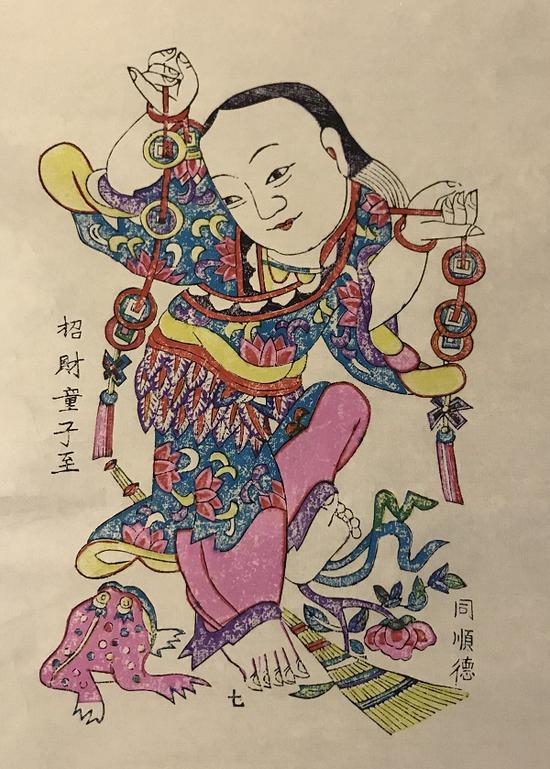 招財童子至
同順德
七